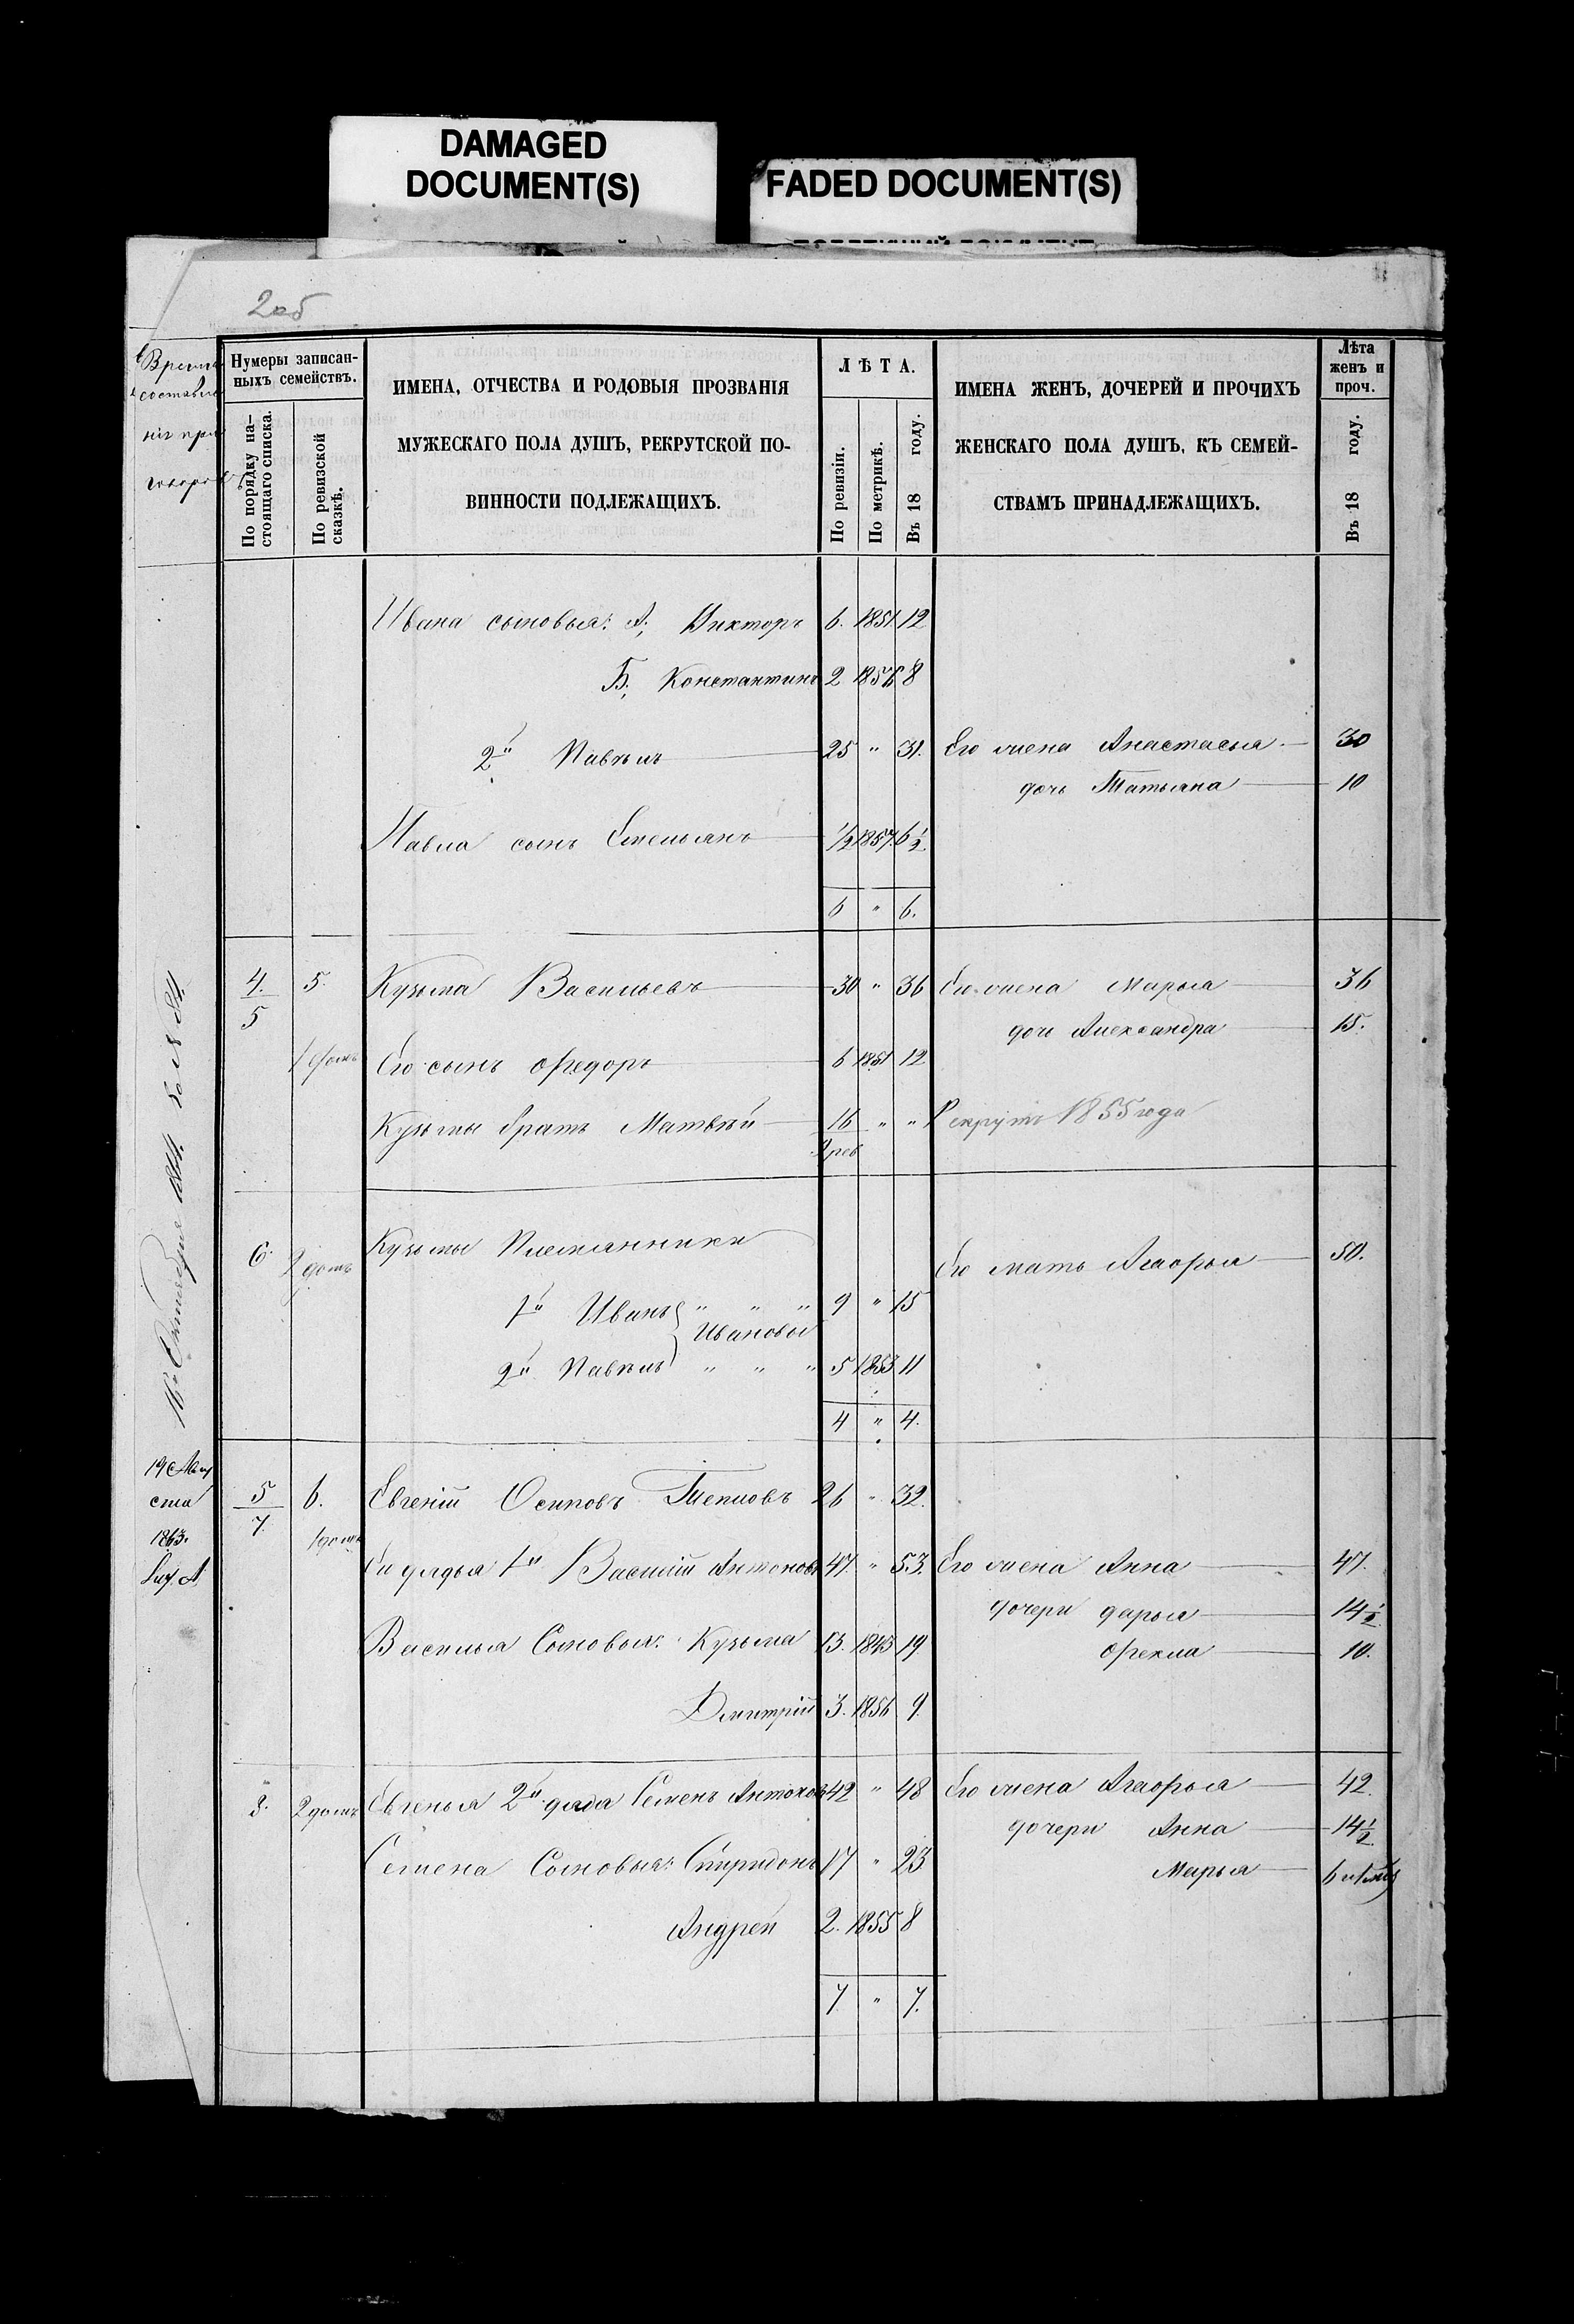 DAMAGED
DOCUMENT(S)
FADED DOCUMENT(S)
2об
Время
составле
нія при
говоровъ
Нумеры записан-
ныхъ семействъ.
По порядку на-
стоящаго списка.
По ревизской
сказкѣ.
ИМЕНА, ОТЧЕСТВА И РОДОВЫЯ ПРОЗВАНІЯ
МУЖЕСКАГО ПОЛА ДУШЪ, РЕКРУТСКОЙ ПО-
ВИННОСТИ ПОДЛЕЖАЩИХЪ.
ЛѢТА.
По ревизіи.
По метрикѣ.
Въ 18 году.
ИМЕНА ЖЕНЪ, ДОЧЕРЕЙ И ПРОЧИХЪ
ЖЕНСКАГО ПОЛА ДУШЪ, КЪ СЕМЕЙ-
СТВАМЪ ПРИНАДЛЕЖАЩИХЪ.
Лѣта
женъ и
проч.
Въ 18 году.
Ивана сыновья: А, Викторъ 6. 1851. 12
Б, Константинъ 2 1856 8
2й Павелъ 25 " 31. Его жена Анастасья 30
дочь Татьяна 10
Павла сынъ Емельянъ 1/2 1857. 6 1/2
6 " 6.
4. 5. Кузьма Васильевъ 30 " 36 Его жена Марья 36
5 дочь Александра 15.
1 домъ Его сынъ Ѳедоръ 6 1851 12
Кузьмы братъ Матвѣй 16 " " Рекрутъ 1855 года
2 рев
6. 2 домъ Кузьмы племянники
Его мать Агафья 50.
1й Иванъ " " " 9 " 15
Ивановы
2й Павелъ " " " 5 1853 11
4 " 4.
16 Октября 1864. за № 84.
19 Авгу
ста
1863.
Лит. А
5 6. Евгеній Осиповъ Теп­ловъ 26 " 32.
7. 1 домъ
Его дядья 1й Василій Антоновъ 47. " 53. Его жена Анна 47.
дочери Дарья 14 1/2
Василья сыновья: Кузьма 13. 1845 19 Ѳекла 10.
Дмитрій 3. 1856 9.
8. 2 домъ Евгенья 2й дядя Семенъ Антоновъ 42 " 48 Его жена Агафья 42.
дочери Анна 14 1/2
Семена сыновья: Спиридонъ 17 " 23 Марья
Андрей 2. 1855 8
7 " 7.